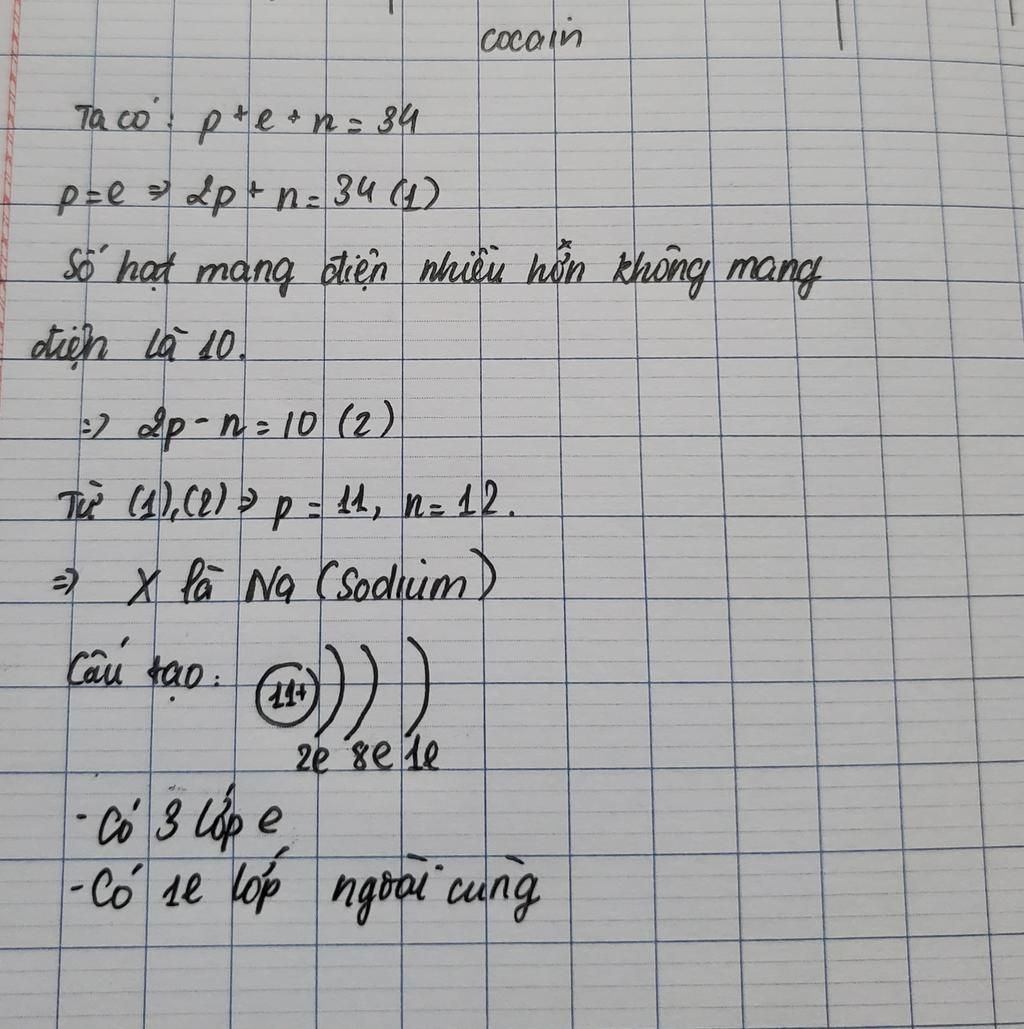 cocain
Ta có: p+e+n=34
p=e => 2p+n=34 (1)
Số hạt mang điện nhiều hơn không mang
điện là 10.
=> 2p-n=10 (2)
Từ (1),(2) => p=11, n=12.
=> X là Na (Sodium)
Cấu tạo: 11+
2e 8e 1e
-Có 3 lớp e
-Có 1e lớp ngoài cùng